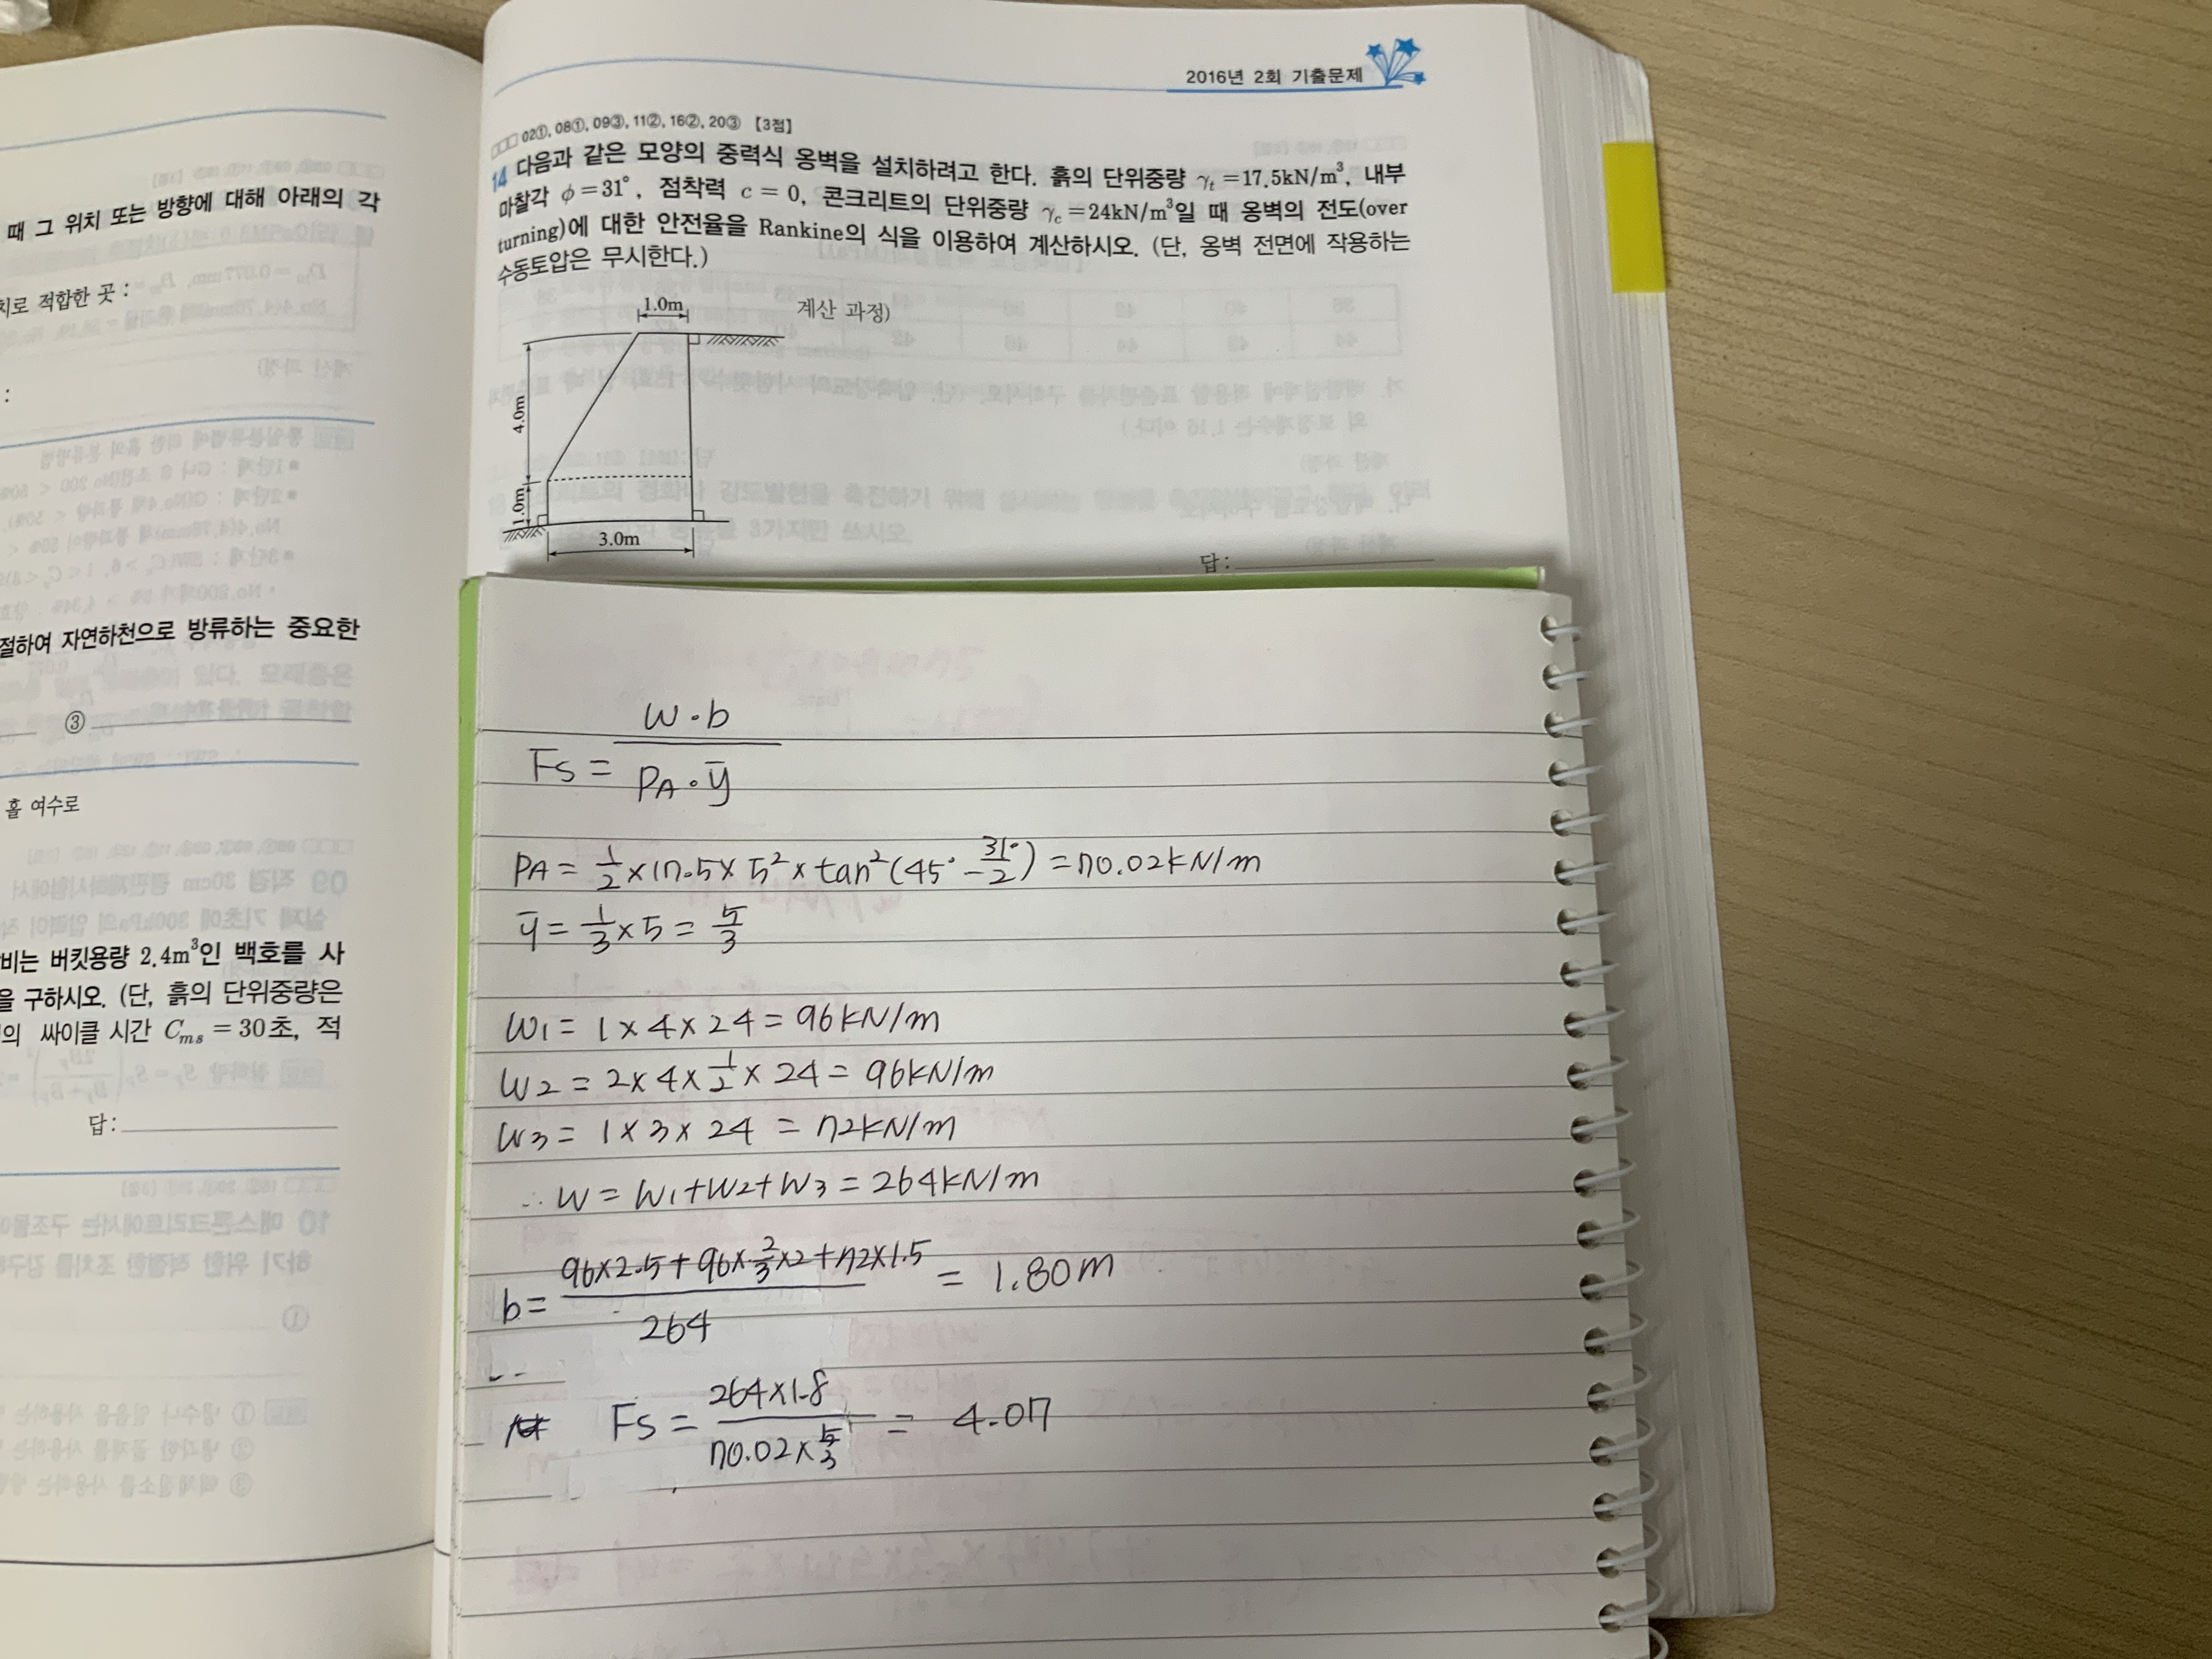 때 그 위치 또는 방향에 대해 아래의 각
치로 적합한 곳 :
:
절하여 자연하천으로 방류하는 중요한
③
홀 여수로
비는 버킷용량 2.4m³인 백호를 사
을 구하시오. (단, 흙의 단위중량은
의 싸이클 시간 Cms = 30초, 적
답:
2016년 2회 기출문제
□□□ 02①, 08①, 09③, 11②, 16②, 20③ 【3점】
14 다음과 같은 모양의 중력식 옹벽을 설치하려고 한다. 흙의 단위중량 γt =17.5kN/m³, 내부
마찰각 ϕ=31°, 점착력 c = 0, 콘크리트의 단위중량 γc =24kN/m³일 때 옹벽의 전도(over
turning)에 대한 안전율을 Rankine의 식을 이용하여 계산하시오. (단, 옹벽 전면에 작용하는
수동토압은 무시한다.)
1.0m
계산 과정)
4.0m
1.0m
3.0m
답:
Fs = W·b / PA·ȳ
PA = 1/2 ×17.5× 5² × tan²(45° - 31°/2) = 70.02kN/m
ȳ = 1/3 × 5 = 5/3
W1 = 1 × 4 × 24 = 96kN/m
W2 = 2 × 4 × 1/2 × 24 = 96kN/m
W3 = 1 × 3 × 24 = 72kN/m
∴ W = W1+W2+W3 = 264kN/m
b = 96×2.5+96×2/3×2+72×1.5 / 264 = 1.80m
Fs = 264×1.8 / 70.02×5/3 = 4.07